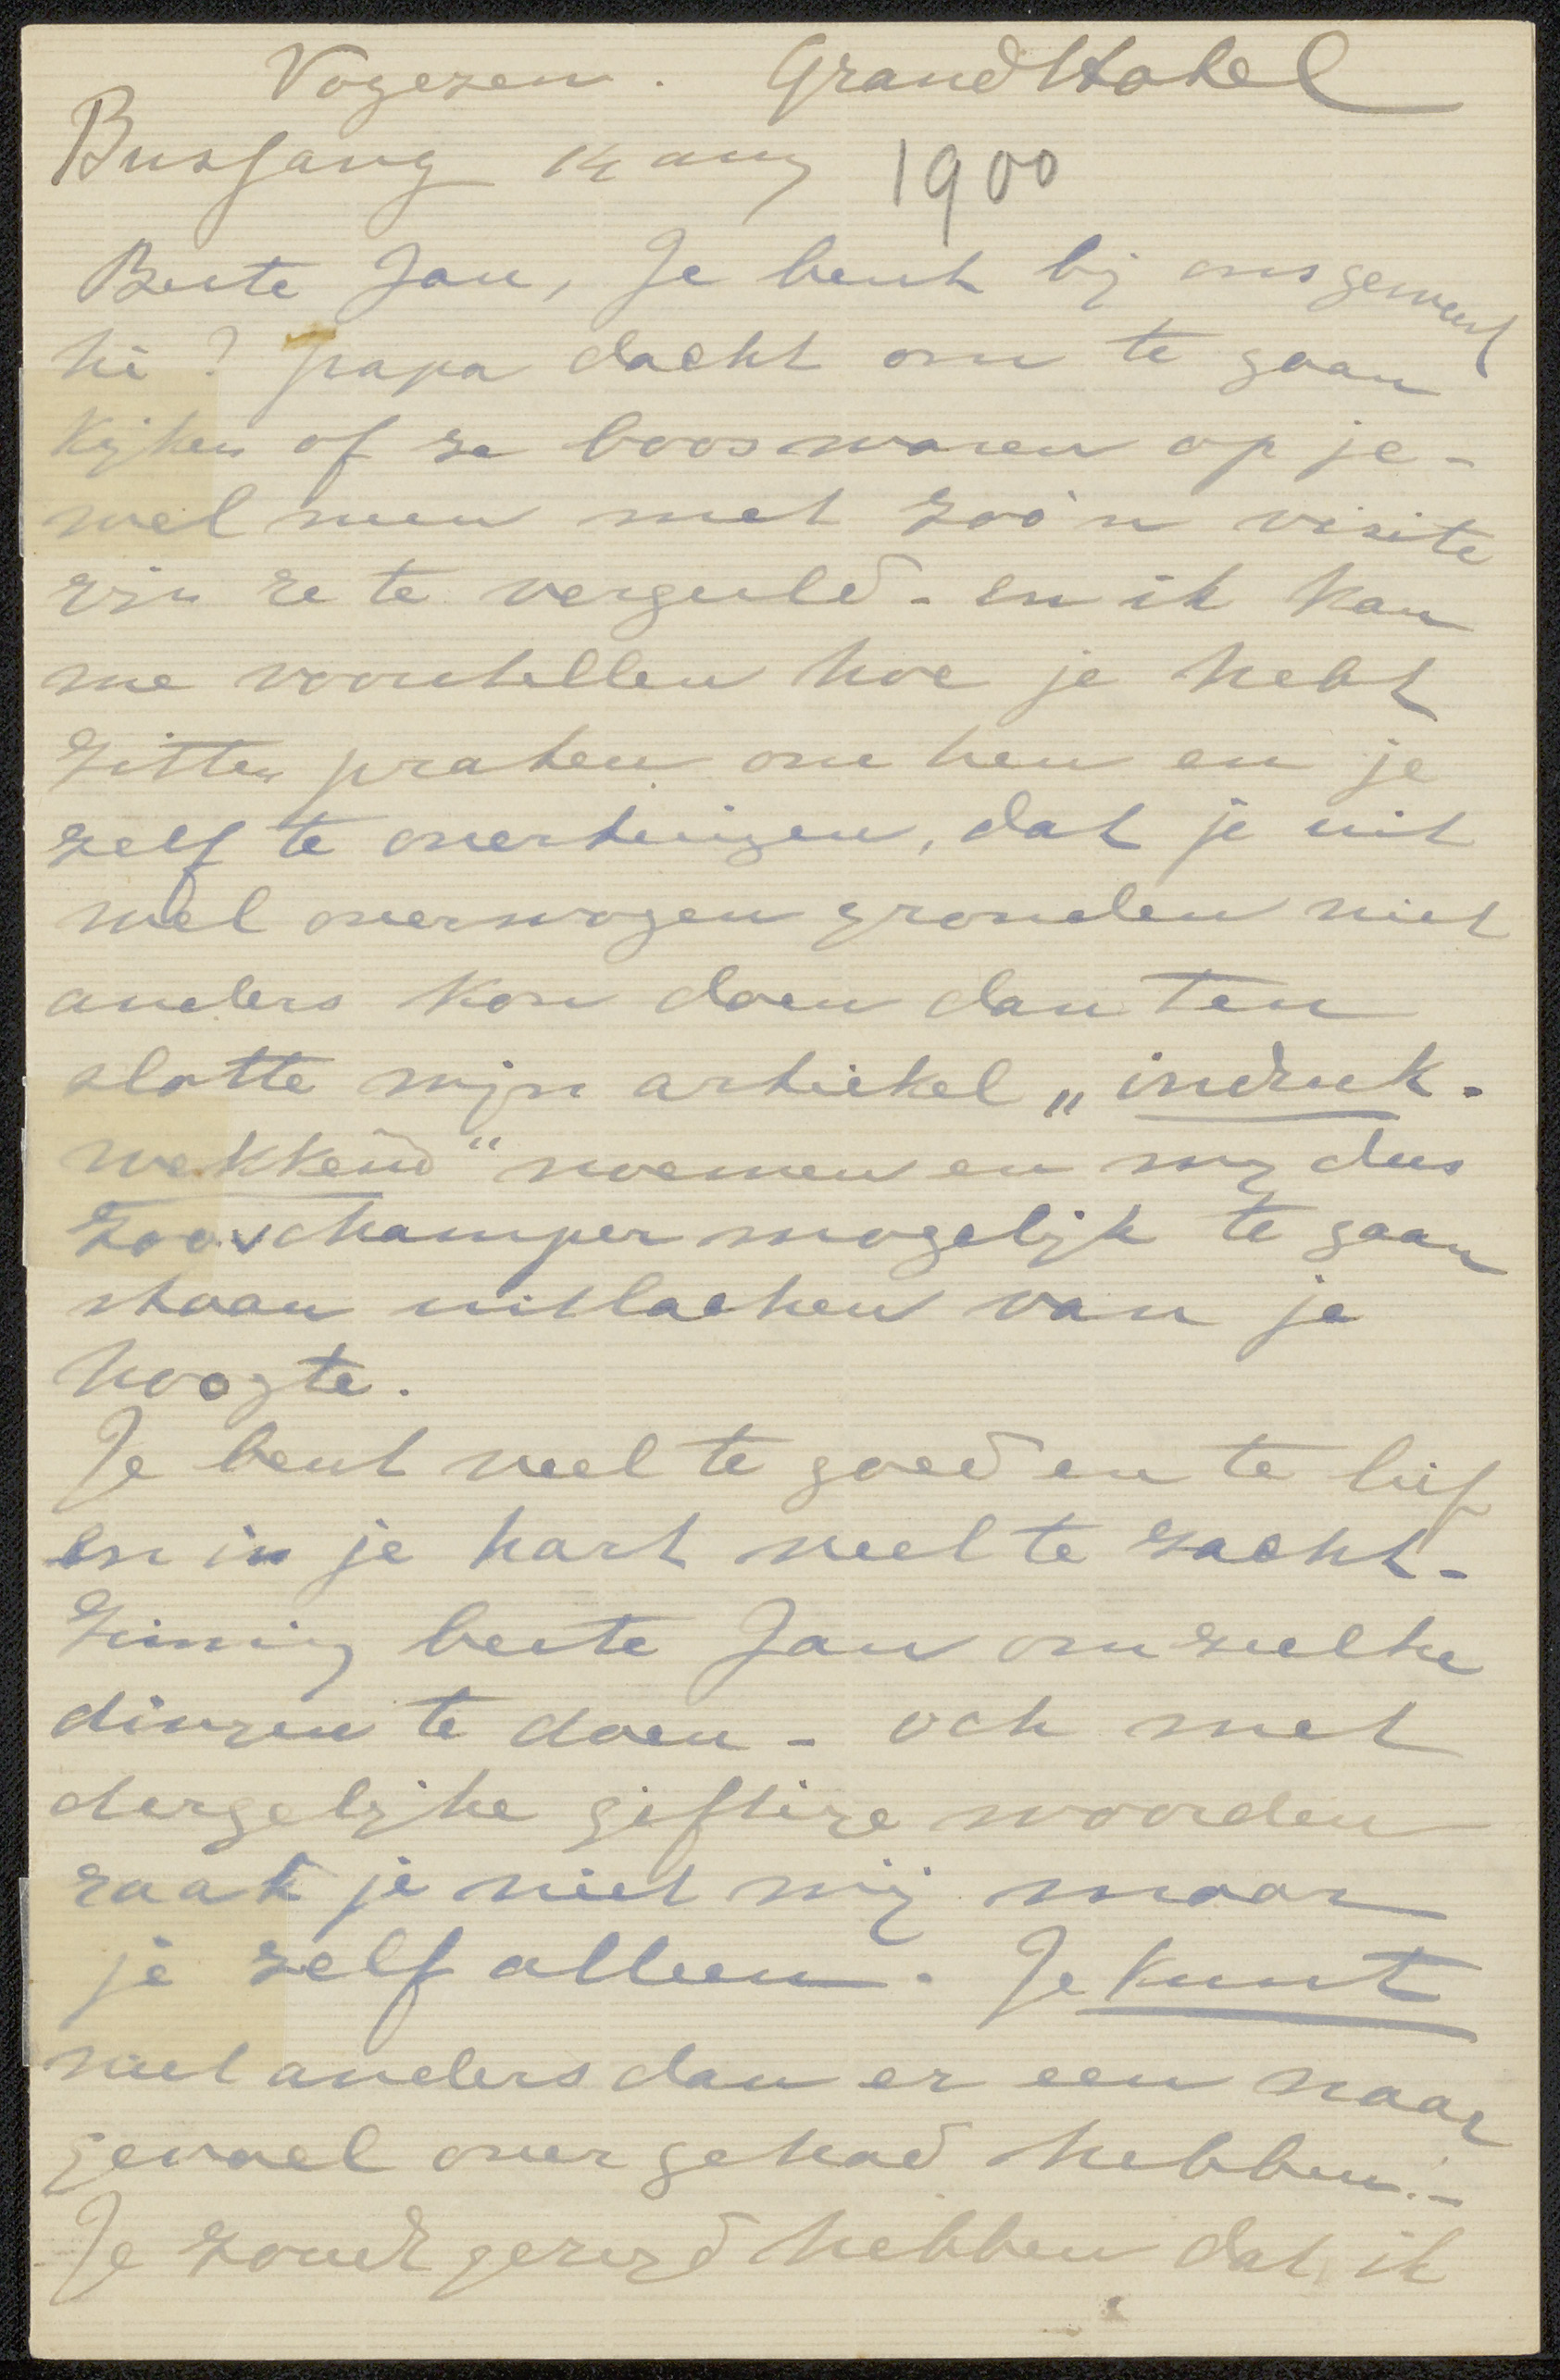 Vogezen. Grand Hotel
Bussang 14 aug 1900
Beste Jan, Je bent bij ons geweest
hè? papa dacht om te gaan
kijken of ze boos waren op je -
wel neen met zoo'n visite
zijn ze te verguld - en ik kan
me voorstellen hoe je hebt
zitten praten om hen en je
zelf te overtuigen, dat je uit
wel overwogen gronden niet
anders kon doen dan ten
slotte mijn artiekel „indruk-
wekkend" noemen en mij dus
zoo schamper mogelijk te gaan
staan uitlachen van je
hoogte.
Je bent veel te goed en te lief
en in je hart veel te zacht-
zinnig beste Jan om zulke
dingen te doen - och met
dergelijke giftige woorden
raak je niet mij maar
je zelf alleen. Je kunt
niet anders dan er een naar
gevoel over gehad hebben. -
Je zoudt gezegd hebben dat ik